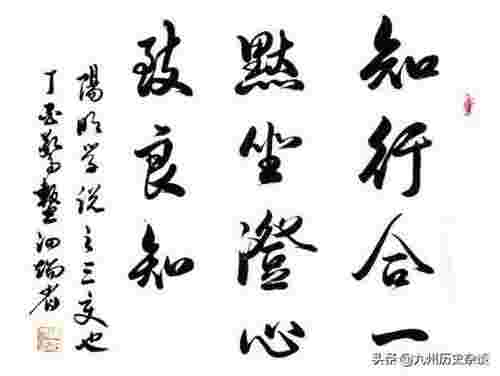 知行合一
默坐澄心
致良知
陽明学说之三变也
丁酉
头条 @九州历史杂谈